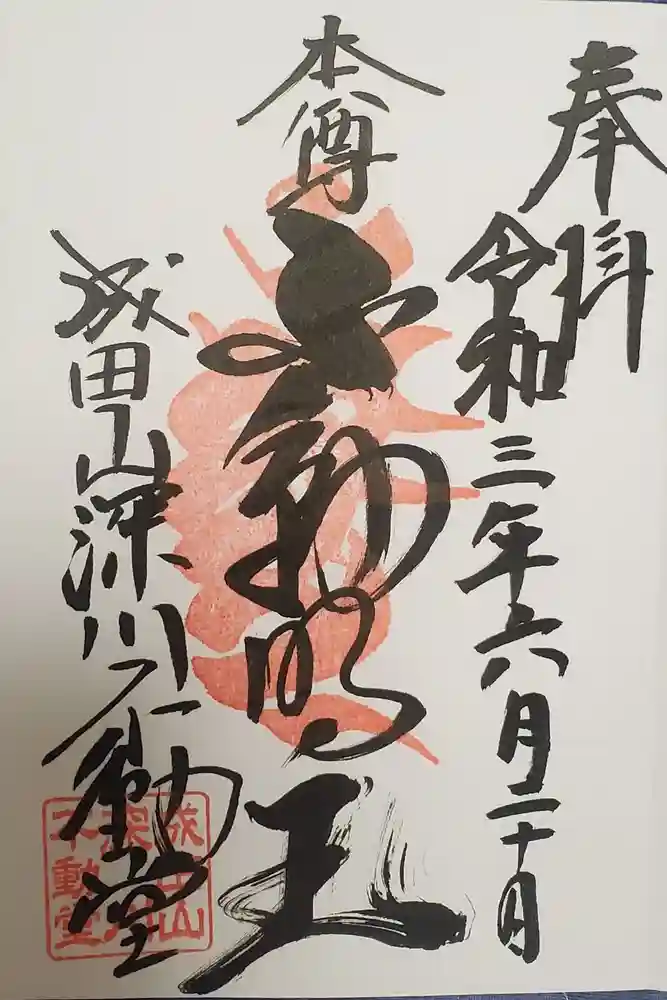 奉拝
令和三年六月二十日
本尊
不動明王
成田山深川不動堂
成田山
深川
不動堂